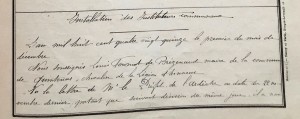 Installation des Instituteurs
L'an mil huit cent quatre vingt quinze le premier du mois de
décembre.
Nous soussigné Louis maire de la commune
de chevalier de la Légion d'honneur
Vu la lettre de Mr le Préfet de l'Ardèche en date du 28 no-
vembre dernier portant que du même jour, il a